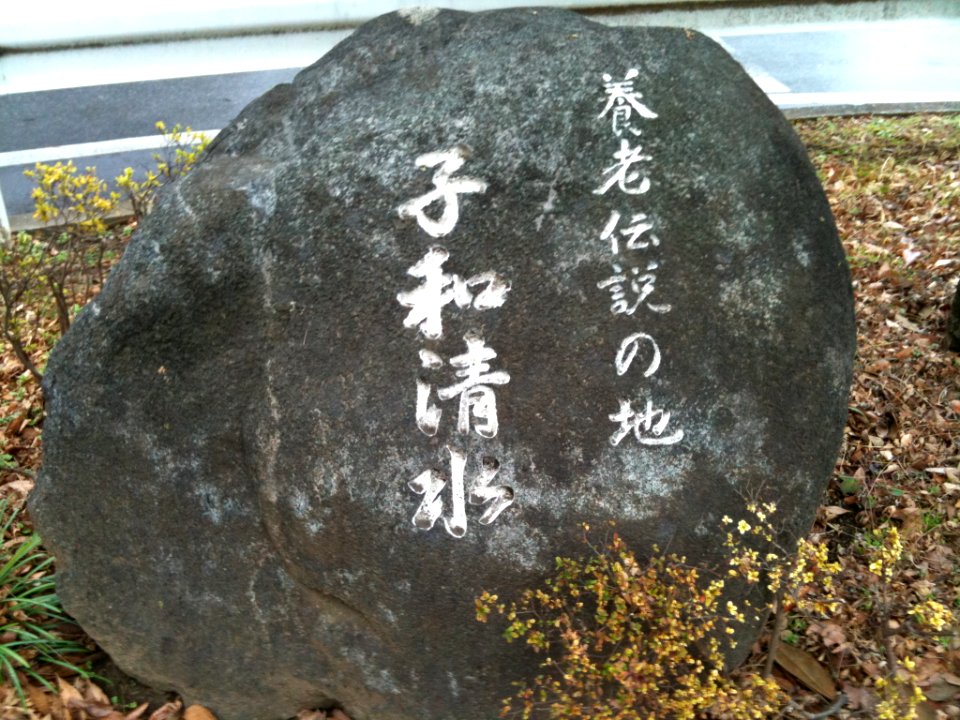 養老伝説の地
子和清水